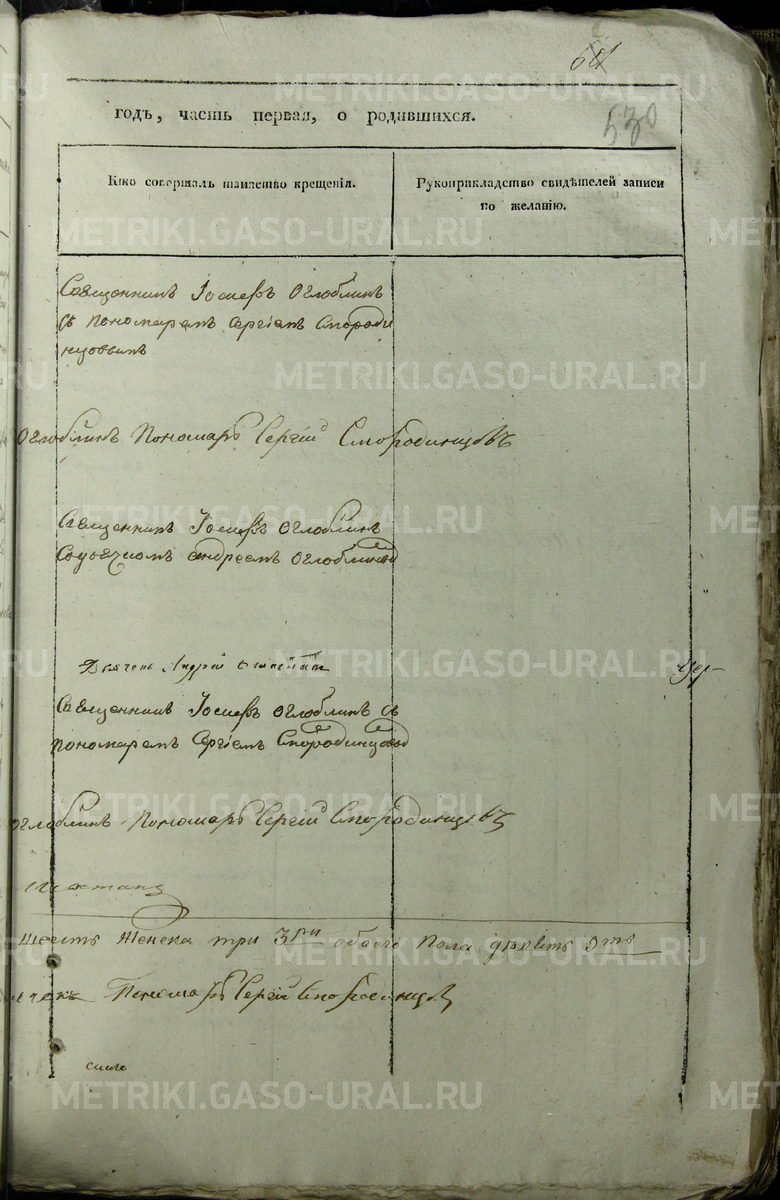 64
530
годъ, часть первая, о родившихся.
Кто совершалъ таинство крещенія.
Рукоприкладство свидѣтелей записи по желанію.
Священникъ Іосифъ Оглоблинъ
съ пономаремъ Сергіемъ Смороди
нцовымъ
Оглоблинъ Пономарь Сергій Смородинцовъ
Священникъ Іосифъ Оглоблинъ
Андреемъ Оглоблинымъ
Дьячекъ Андрей
Священникъ Іосифъ Оглоблинъ съ
пономаремъ Сергіемъ Смородинцовым
Оглоблинъ Пономарь Сергій Смородинцовъ
шесть женска три 3ри обоего пола девять 9ть
Пономарь Сергій Смородинцов
METRIKI.GASO-URAL.RU